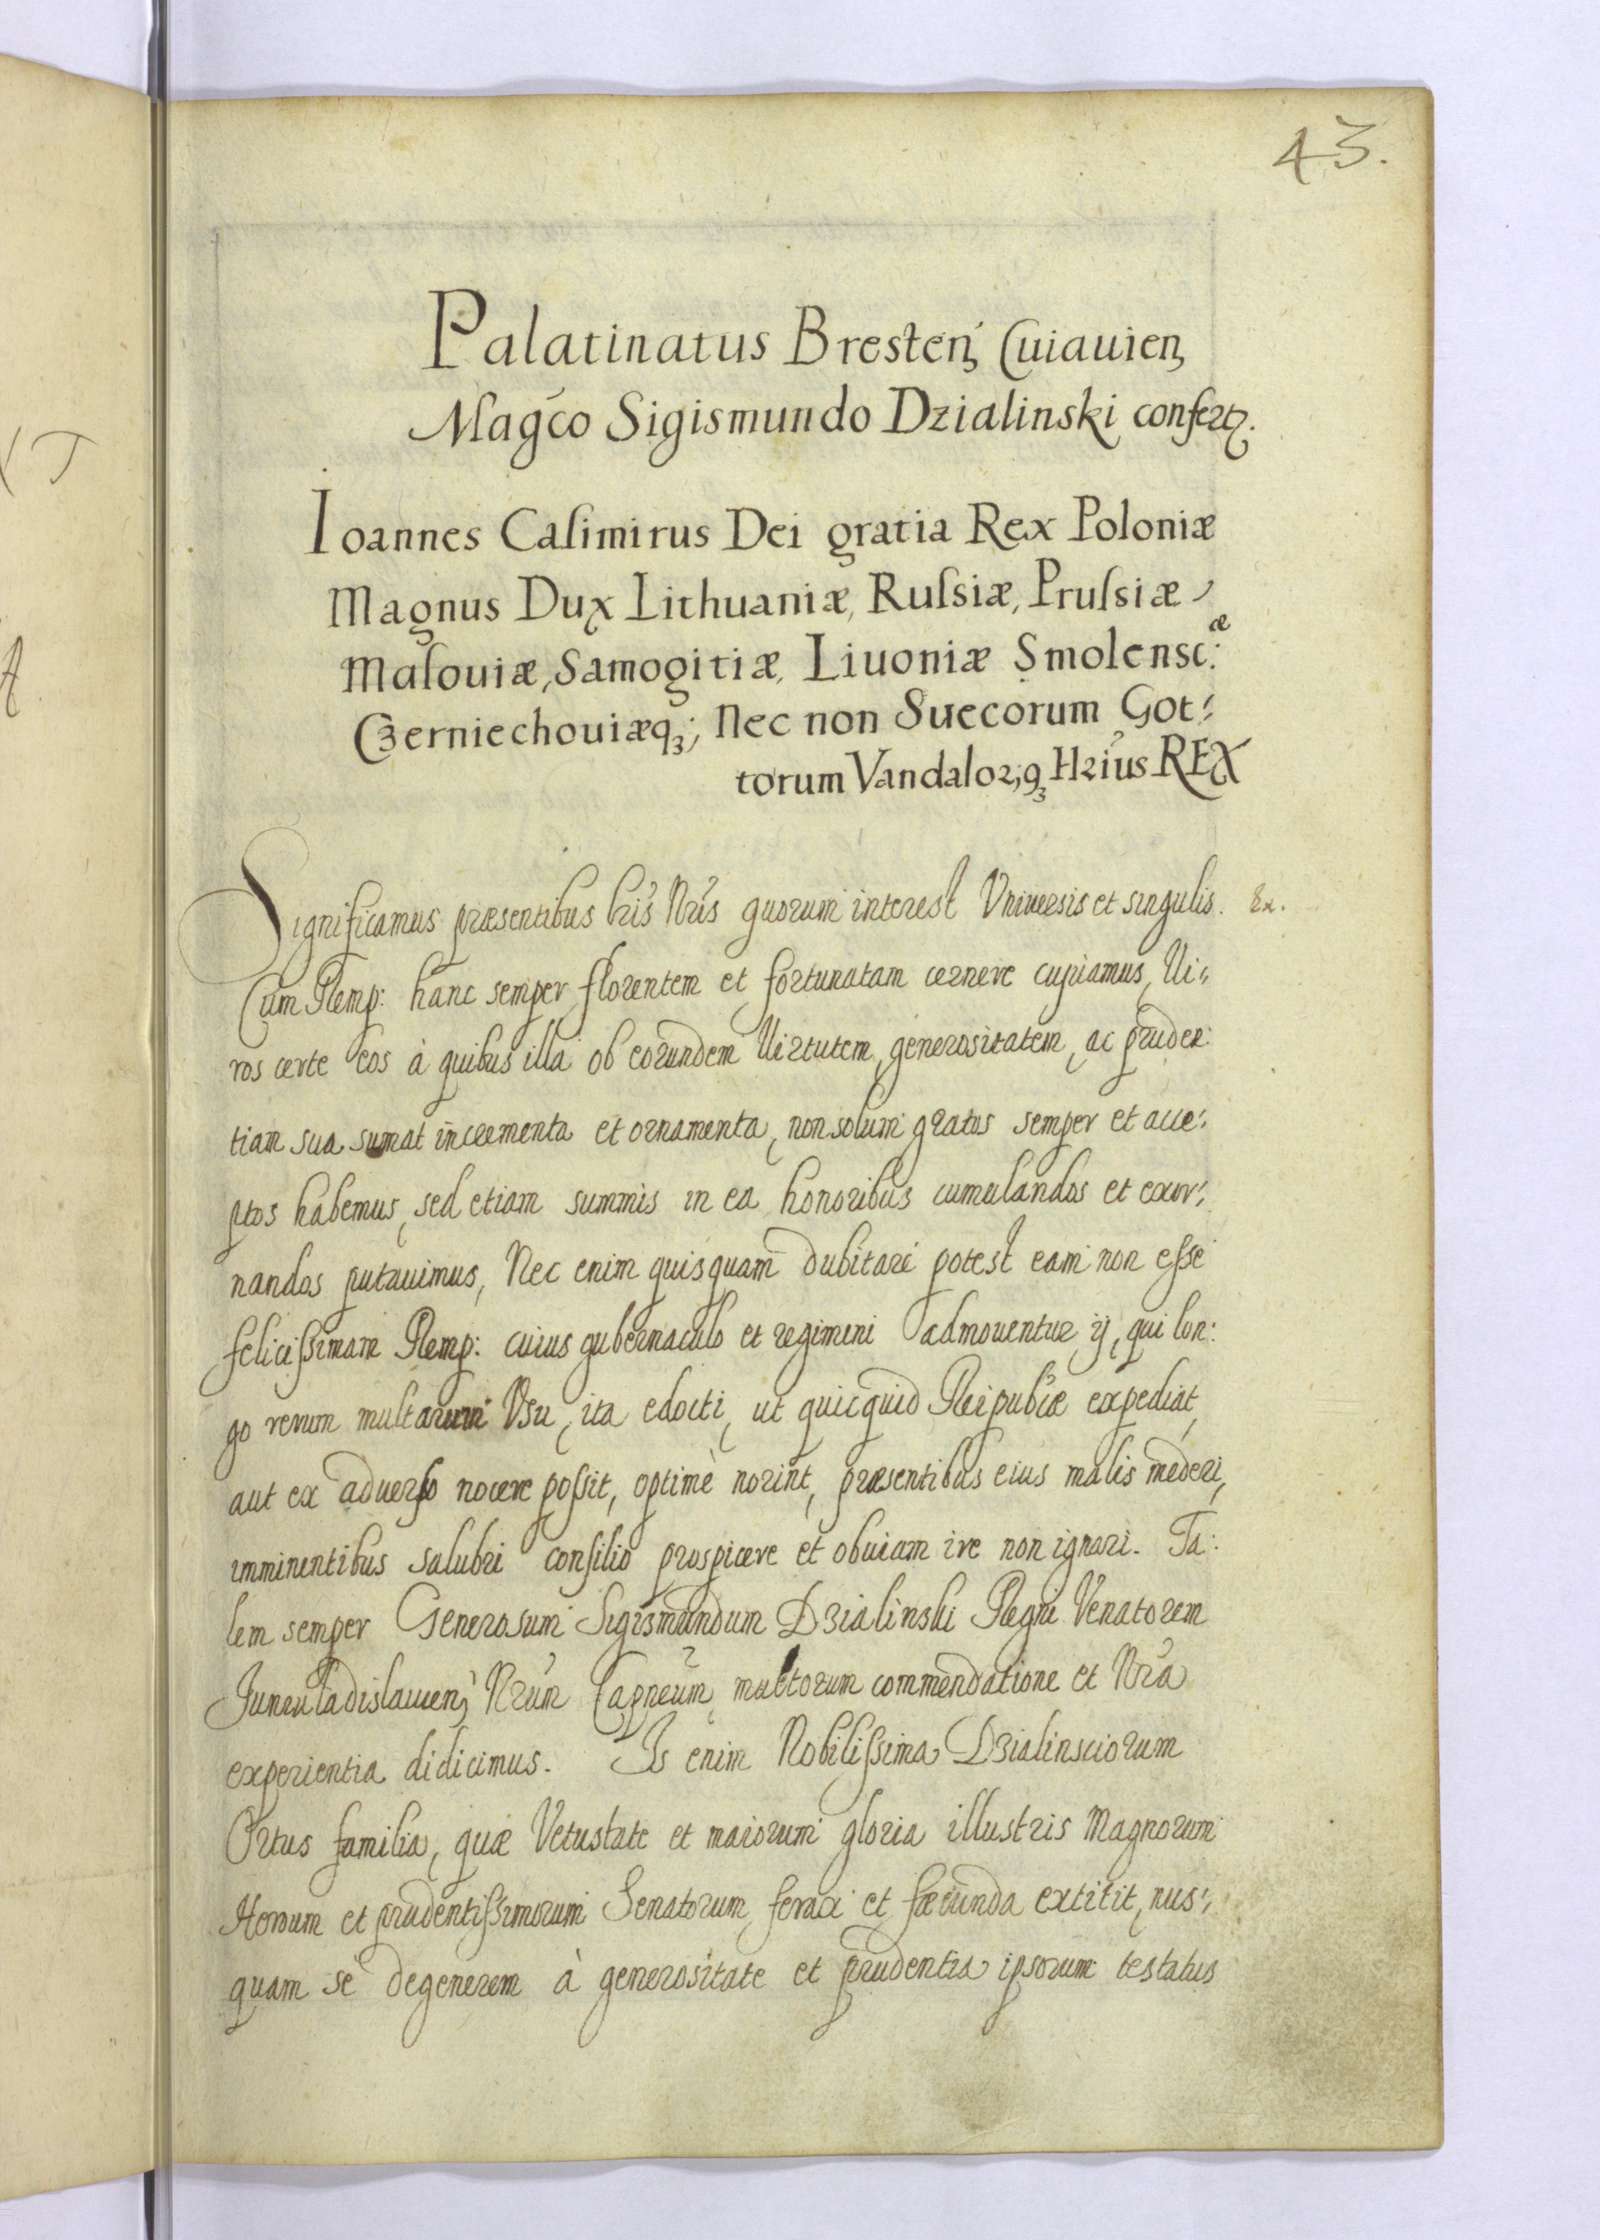 43.
Palatinatus Bresten̄ Cuiauien̄
Magc̄o Sigismundo Dzialinski confertꝫ.
Ioannes Casimirus Dei gratia Rex Poloniæ
Magnus Dux Lithuaniæ, Russiæ, Prussiæ,
Masouiæ, Samogitiæ, Liuoniæ Smolensc:æ
Czerniechouiæqꝫ; Nec non Suecorum Got:
torum Vandaloꝝqꝫ Hrius REX
Significamus præsentibus lris Nris quorum interest Vniuersis et singulis. Ex.
Cum Remp: hanc semper florentem et fortunatam cernere cupiamus, Ui:
ros certe eos à quibus illa ob eorundem Uirtutem, generositatem, ac pruden:
tiam sua sumat incrementa et ornamenta, non solum gratos semper et acce:
ptos habemus, sed etiam summis in ea honoribus cumulandos et exor:
nandos putauimus, Nec enim quisquam dubitare potest eam non esse
felicissimam Remp: cuius gubernaculo et regimini admouentur ij, qui lon:
go rerum multarum Vsu, ita edocti, ut quicquid Reipublcæ expediat,
aut ex aduerso nocere possit, optimè norint, præsentibus eius malis mederi,
imminentibus salubri consilio prospicere et obuiam ire non ignari. Ta:
lem semper Generosum Sigismundum Dzialinski Regni Venatorem
Juneuladislauien̄ Nrum Capneum, multorum commendatione et Nra
experientia didicimus. Is enim Nobilissima Dzialinsciorum
Ortus familia, quæ Vetustate et maiorum gloria illustris Magnorum
Heroum et prudentissimorum Senatorum ferax et fæcunda extitit, nus:
quam se degenerem à generositate et prudentia ipsorum testatus